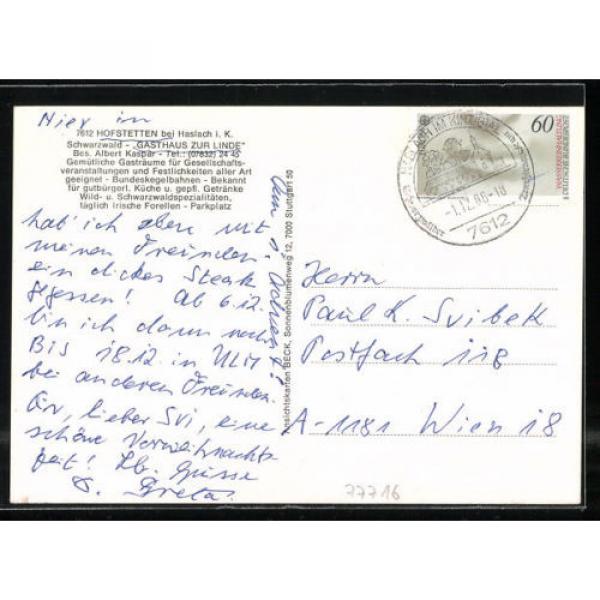 Hier in
7612 HOFSTETTEN bei Haslach i. K.
Schwarzwald - „GASTHAUS ZUR LINDE"
Bes. Albert Kaspar - Tel. (07832) 24 45
Gemütliche Gasträume für Gesellschafts-
veranstaltungen und Festlichkeiten aller Art
geeignet - Bundeskegelbahnen - Bekannt
für gutbürgerl. Küche u. gepfl. Getränke
Wild- u. Schwarzwaldspezialitäten,
täglich frische Forellen - Parkplatz
hab' ich eben mit
meinen Freunden
ein dickes Steak
gegessen! Ab 6.12.
bin ich dann noch
Bis 18.12. in ULM
bei anderen Freunden.
lieber Svi, eine
schöne Vorweihnachts
zeit! Lb. Grüsse
D. Greta.
Ansichtskarten BECK, Sonnenblumenweg 12, 7000 Stuttgart 50
60
HASLACH IM KINZIGTAL
-1.12.86-18
7612
Herrn
Paul K. Svibek
Postfach 118
A-1181 Wien 18
77716